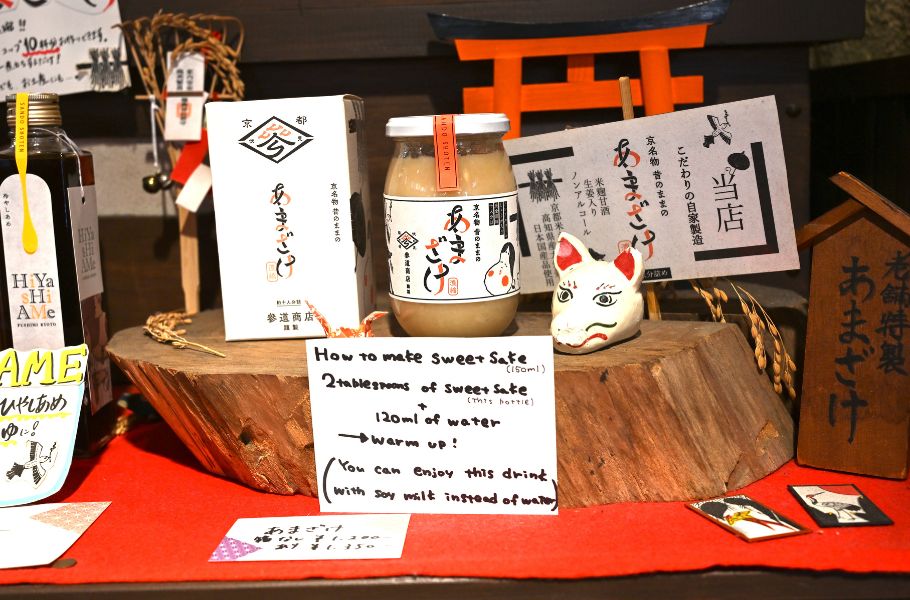 コップ10杯分
SANDO SHOTEN
ひやしあめ
HiYa
sHi
AMe
FUSHIMI KYOTO
AME
ひやしあめ
京都
京名物 昔のままの
あまざけ
約十人分詰
參道商店
謹製
SANDO SHOTEN
京名物 昔のままの
あまざけ
參道商店
当店
こだわりの自家製造
京名物 昔のままの
あまざけ
米麹甘酒
生姜入り
ノンアルコール
日本国産品使用
老舗特製
あまざけ
How to make sweet Sake
(150ml)
2tablespoons of sweet Sake
(This bottle)
+
120ml of water
→warm up!
(You can enjoy this drink
with soy milk instead of water)
あまざけ
箱なし ¥1,200-
あり ¥1,350